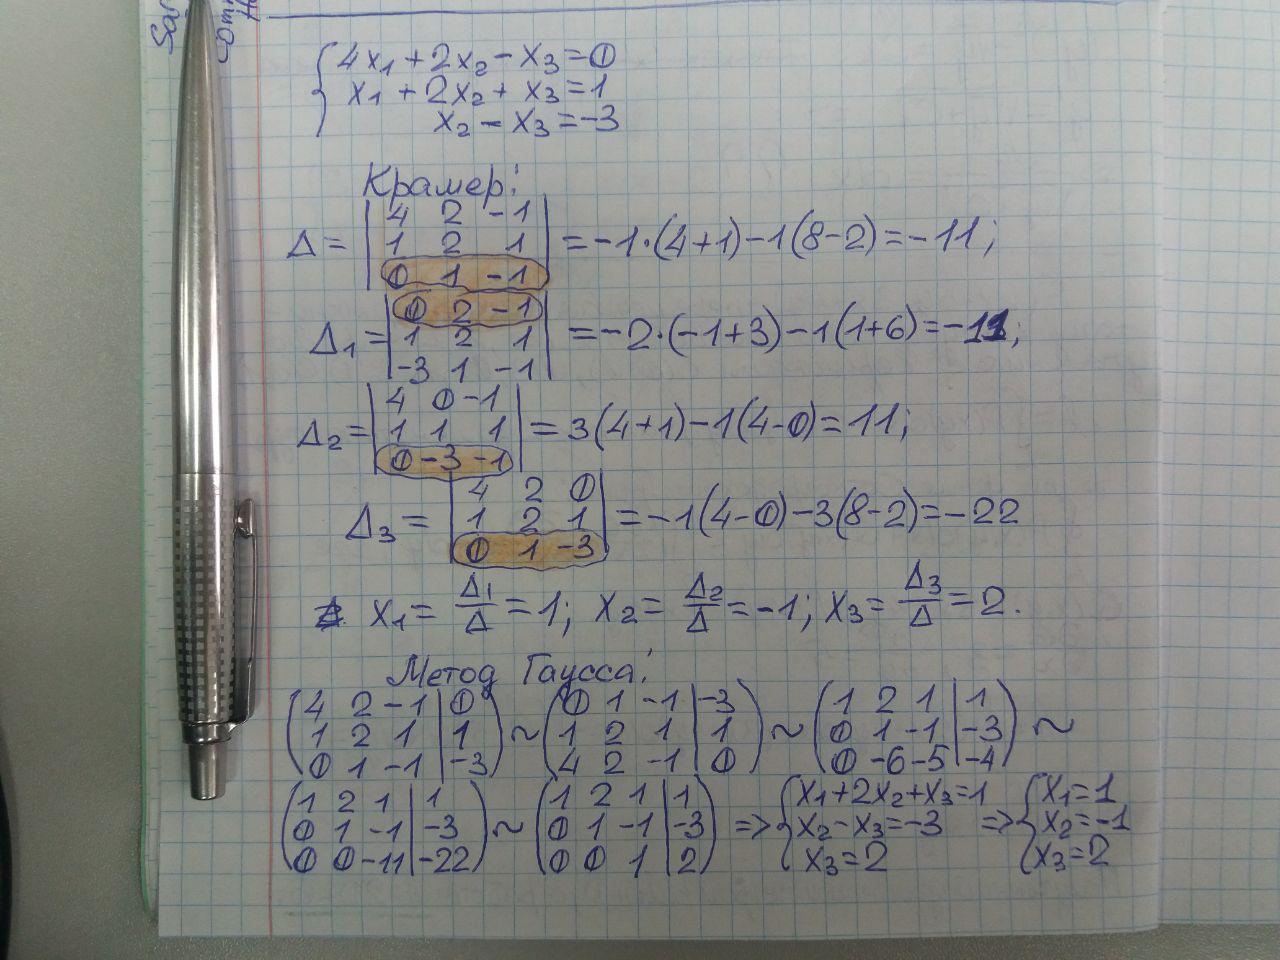 4x₁ + 2x₂ - x₃ = 0
x₁ + 2x₂ + x₃ = 1
x₂ - x₃ = -3
Крамер:
Δ = |4 2 -1; 1 2 1; 0 1 -1| = -1·(4+1)-1(8-2) = -11;
Δ₁ = |0 2 -1; 1 2 1; -3 1 -1| = -2·(-1+3)-1(1+6) = -11;
Δ₂ = |4 0 -1; 1 1 1; 0 -3 -1| = 3(4+1)-1(4-0) = 11;
Δ₃ = |4 2 0; 1 2 1; 0 1 -3| = -1(4-0)-3(8-2) = -22
x₁ = Δ₁/Δ = 1; x₂ = Δ₂/Δ = -1; x₃ = Δ₃/Δ = 2.
Метод Гаусса:
(4 2 -1 | 0; 1 2 1 | 1; 0 1 -1 | -3) ~ (0 1 -1 | -3; 1 2 1 | 1; 4 2 -1 | 0) ~ (1 2 1 | 1; 0 1 -1 | -3; 0 -6 -5 | -4) ~
(1 2 1 | 1; 0 1 -1 | -3; 0 0 -11 | -22) ~ (1 2 1 | 1; 0 1 -1 | -3; 0 0 1 | 2) => {x₁+2x₂+x₃=1; x₂-x₃=-3; x₃=2 => {x₁=1; x₂=-1; x₃=2